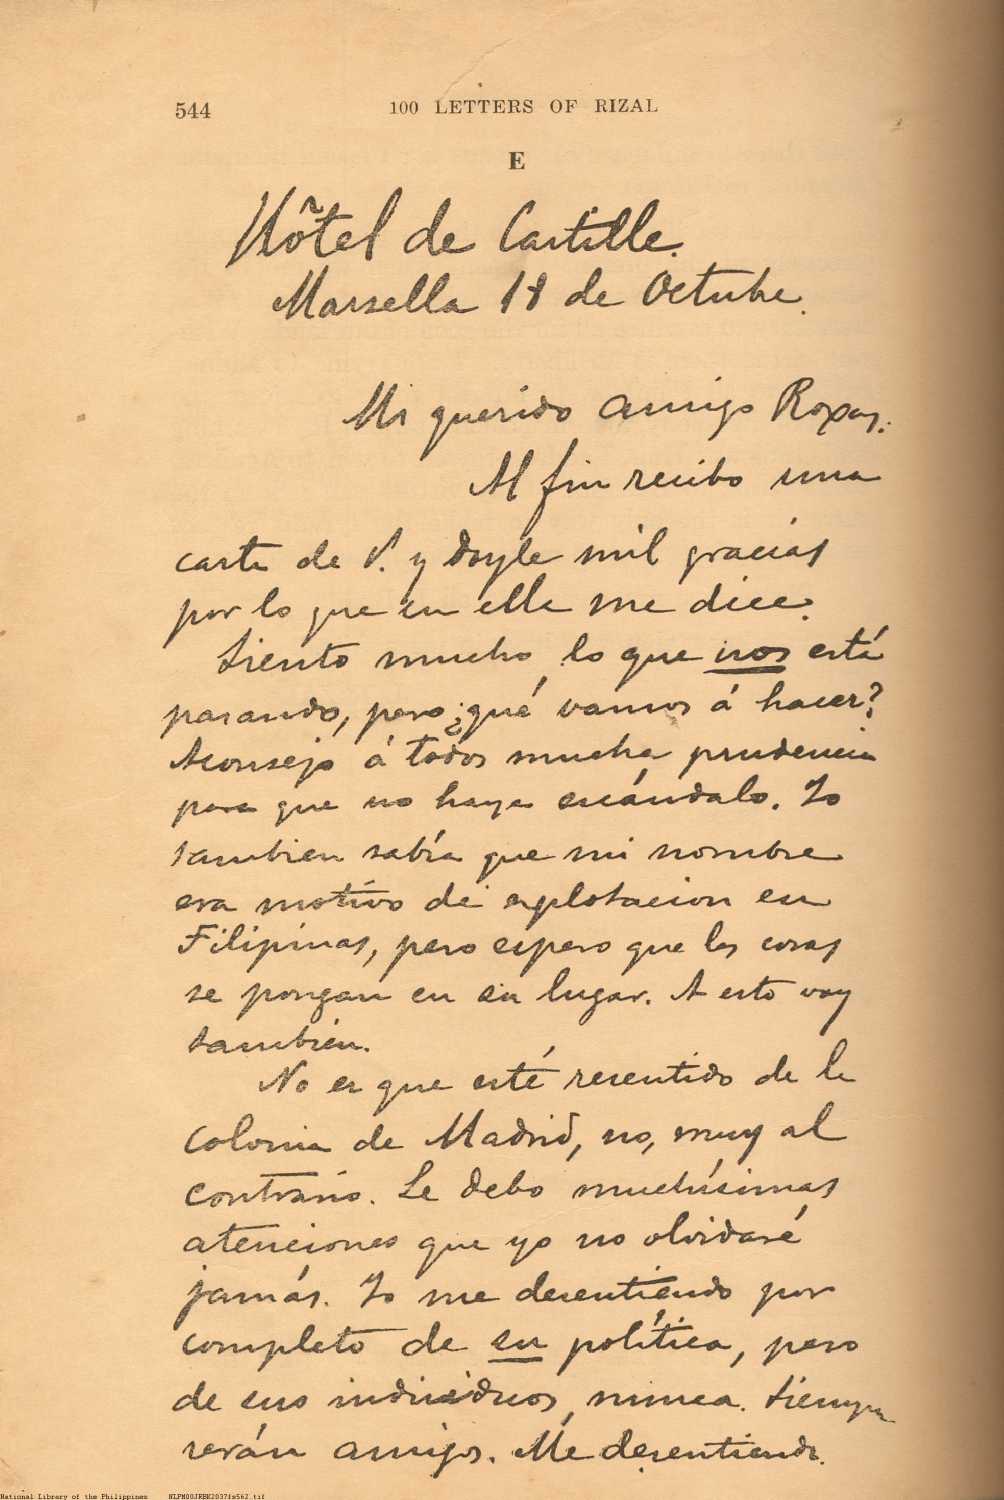 544
100 LETTERS OF RIZAL
E
Hôtel de Castille.
Marsella 18 de Octubre.
Mi querido amigo Roxas:
Al fin recibo una
carta de V. y doyle mil gracias
por lo que en ella me dice.
Siento mucho lo que nos está
pasando, pero ¿qué vamos á hacer?
Aconsejo á todos mucha prudencia
para que no haya escándalo. Yo
tambien sabía que mi nombre
era motivo de esplotacion en
Filipinas, pero espero que las cosas
se pongan en su lugar. A esto voy
también.
No es que esté resentido de la
colonia de Madrid, no, muy al
contrario. Le debo muchísimas
atenciones que yo no olvidaré
jamás. Yo me desentiendo por
completo de su política, pero
de sus individuos, nunca. Siempre
serán amigos. Me desentiendo
National Library of the Philippines NLPM00JRBK2037fs562.tif